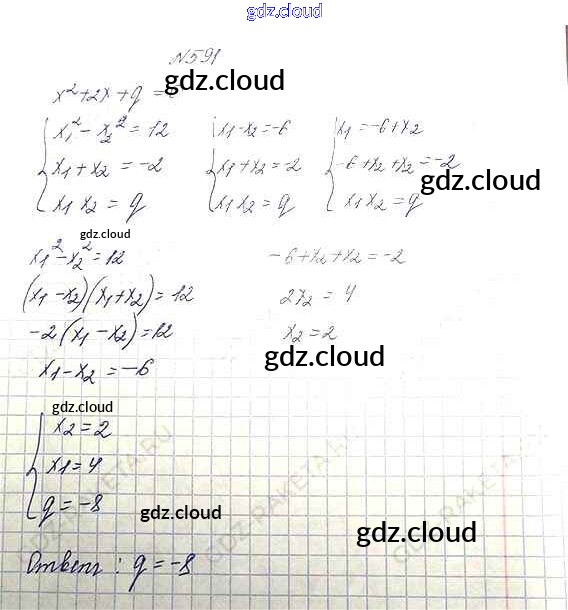 gdz.cloud
№591
gdz.cloud
x²+2x+q =
x₁² - x₂² = 12
x₁ + x₂ = -2
x₁ x₂ = q
x₁-x₂=-6
x₁+x₂ = -2
x₁x₂ = q
x₁=-6+x₂
-6+x₂+x₂=-2
x₁x₂=q
gdz.cloud
gdz.cloud
x₁²-x₂²=12
(x₁-x₂)(x₁+x₂)=12
-2(x₁-x₂)=12
x₁-x₂ =-6
-6+x₂+x₂=-2
2x₂ = 4
x₂=2
gdz.cloud
gdz.cloud
x₂=2
x₁=4
q=-8
gdz.cloud
gdz.cloud
Ответ: q=-8
GDZ-RAKETA.RU
GDZ-RAKETA.RU